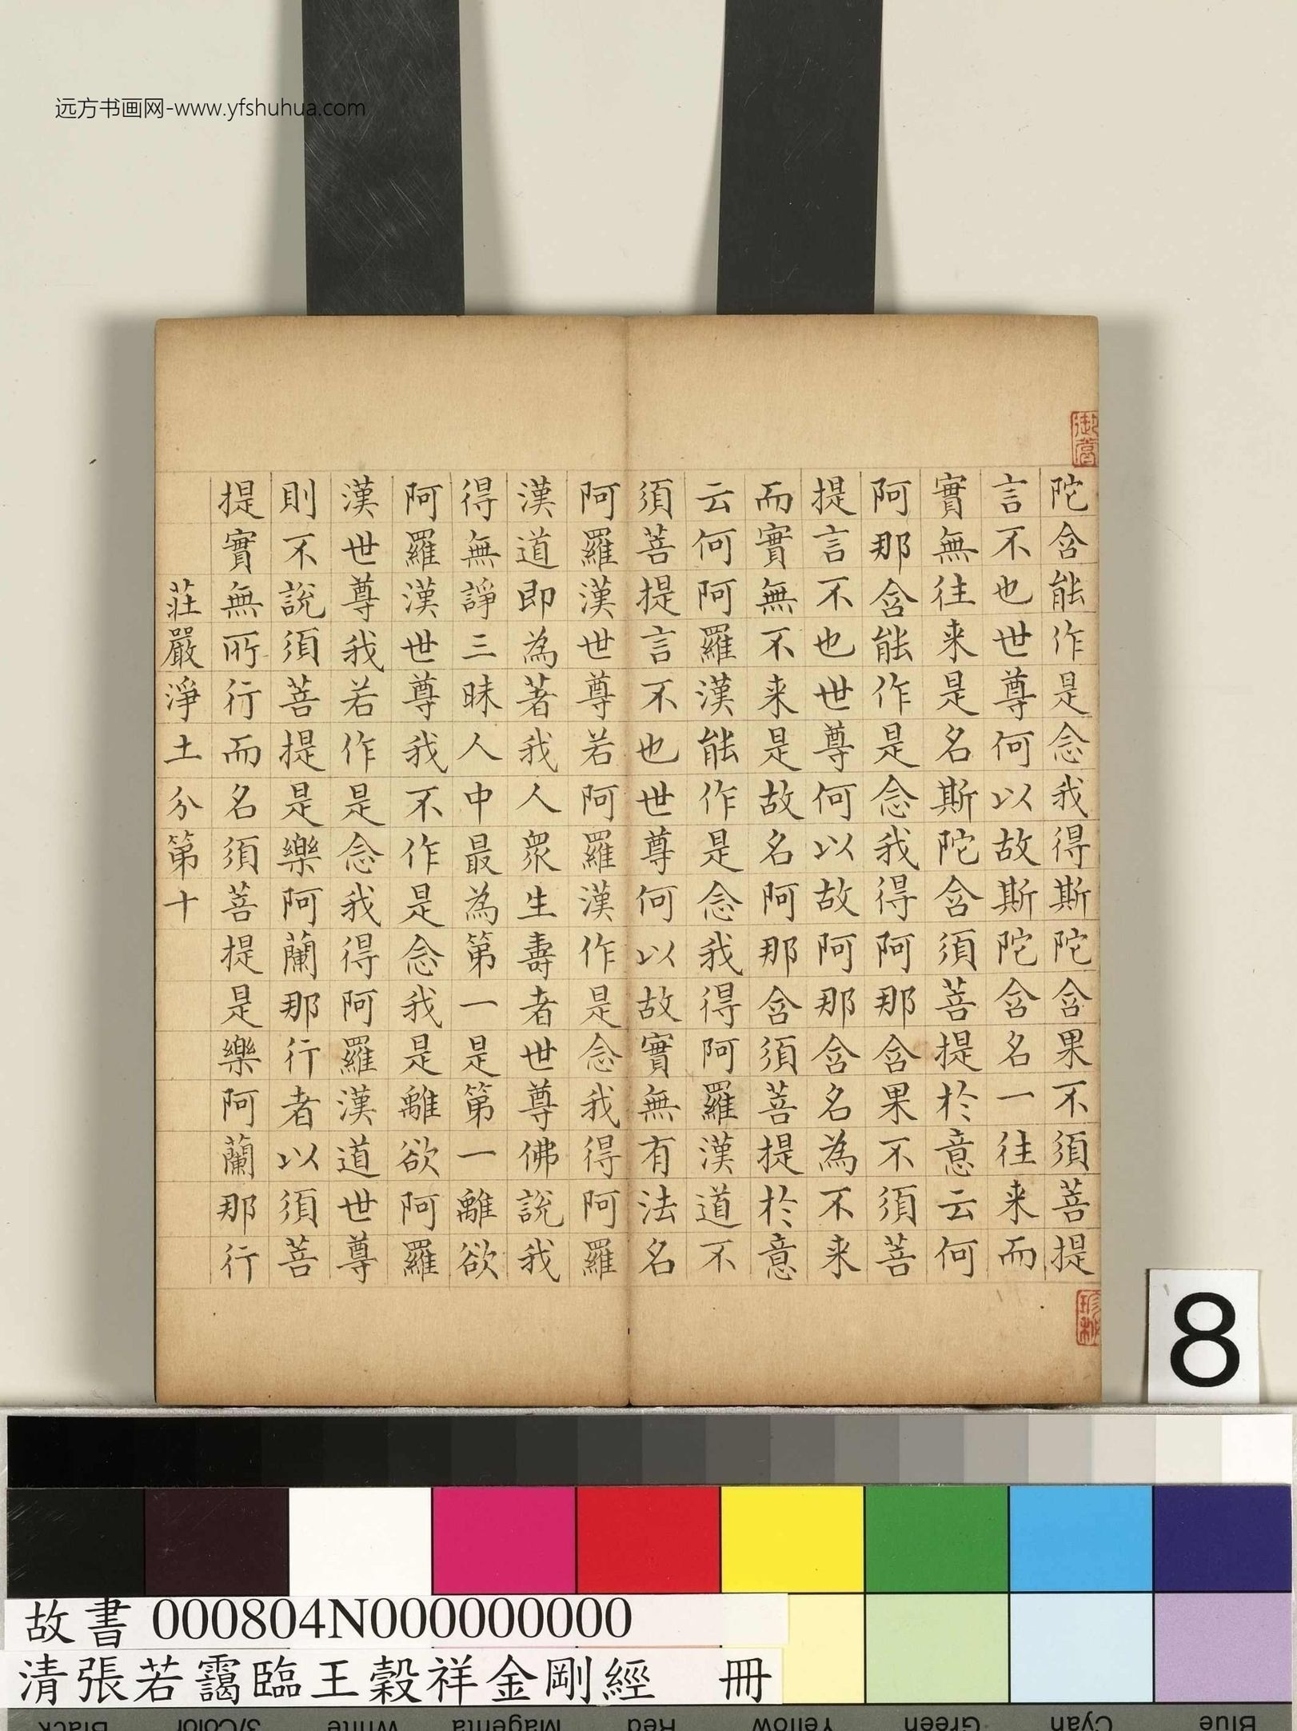 远方书画网-www.yfshuhua.com
陀含能作是念我得斯陀含果不須菩提
言不也世尊何以故斯陀含名一往来而
實無往来是名斯陀含須菩提於意云何
阿那含能作是念我得阿那含果不須菩
提言不也世尊何以故阿那含名為不来
而實無不来是故名阿那含須菩提於意
云何阿羅漢能作是念我得阿羅漢道不
須菩提言不也世尊何以故實無有法名
阿羅漢世尊若阿羅漢作是念我得阿羅
漢道即為著我人眾生壽者世尊佛說我
得無諍三昧人中最為第一是第一離欲
阿羅漢世尊我不作是念我是離欲阿羅
漢世尊我若作是念我得阿羅漢道世尊
則不說須菩提是樂阿蘭那行者以須菩
提實無所行而名須菩提是樂阿蘭那行
莊嚴淨土分第十
8
故書 000804N000000000
清張若靄臨王穀祥金剛經 冊
Black
3/Color
White
Magenta
Red
Yellow
Green
Cyan
Blue